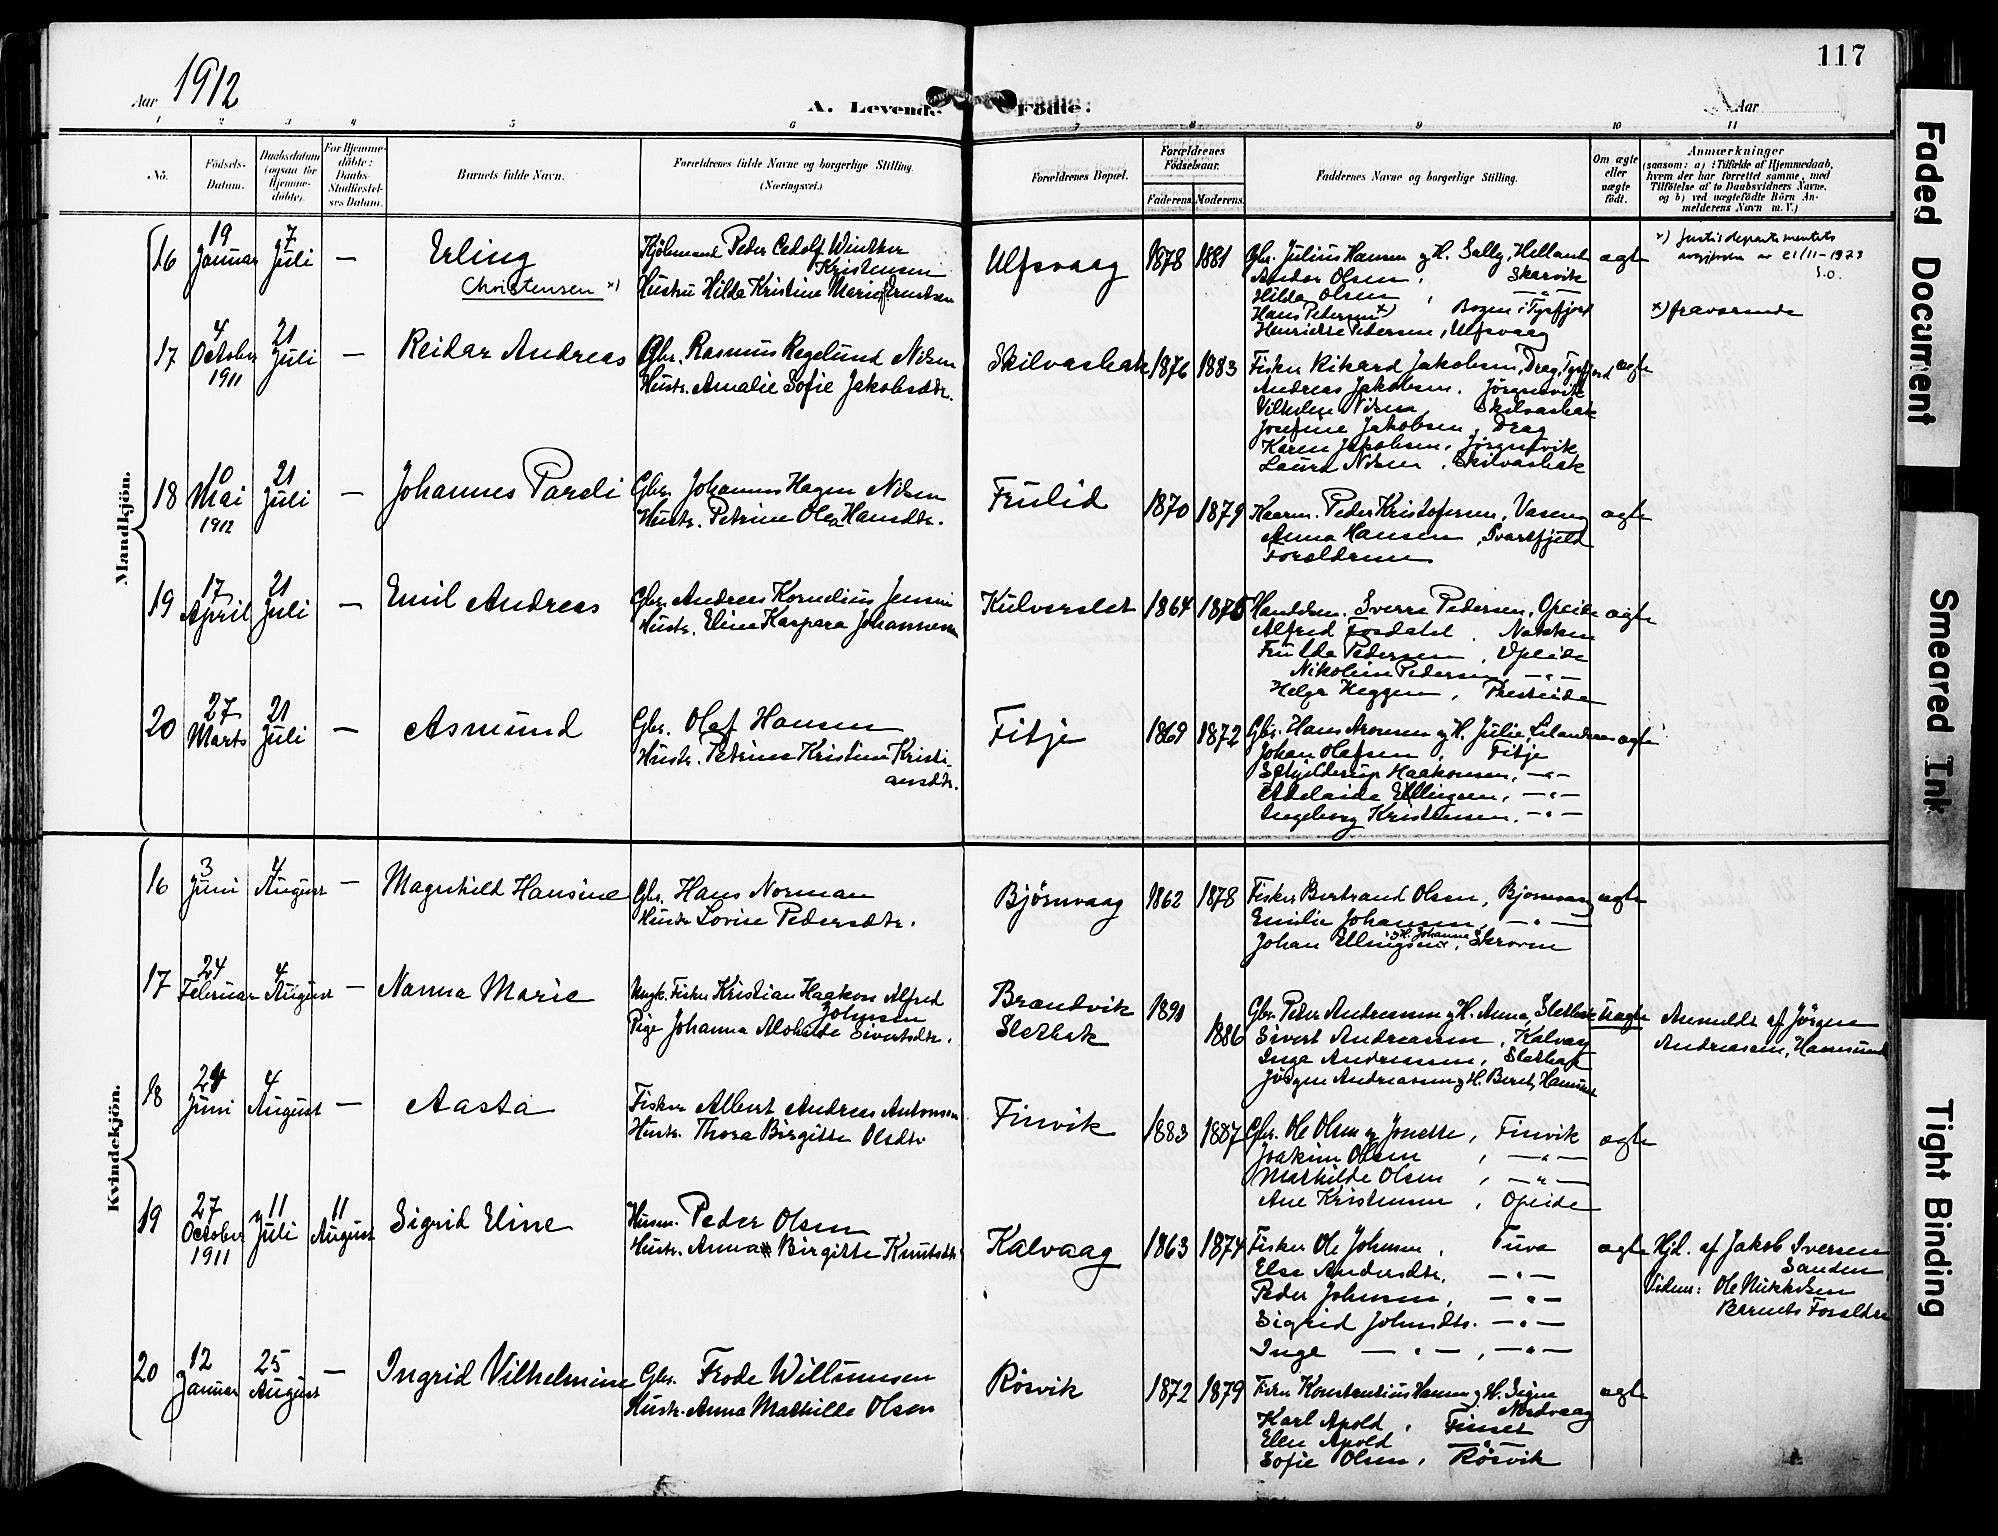 117
Aar 1912
A. Levende Födte.
Aar
1 2 3 4 5 6 7 8 9 10 11
No.
Födsels-Datum.
Daabsdatum (ogsaa for Hjemme-döbte).
For Hjemme-döbte: Daabs-Stadfæstel-ses Datum.
Barnets fulde Navn.
Forældrenes fulde Navne og borgerlige Stilling. (Næringsvei.)
Forældrenes Bopæl.
Forældrenes Födselsaar.
Faderens. Moderens.
Faddernes Navne og borgerlige Stilling.
Om ægte eller uægte födt.
Anmærkninger
(saasom: a) i Tilfælde af Hjemmedaab, hvem der har forrettet samme, med Tilföielse af to Daabsvidners Navne, og b) ved uægtefödte Börn An-melderens Navn m. V.)
Mandkjön.
16 19 Januar 7 Juli — Erling Christensen x)
Peder Cedolf Winther Kristensen
Hustru Hilda Kristine Marie Arntsen
Ulfsvaag 1878 1881
Gbr. Julius Hansen g H. Sally, Helland
Andor Olsen, Skarvik
Hilda Olsen, —"—
Hans Petersen x) Bogen i Tysfjord
Henriette Pedersen, Ulfsvaag
ægte
x) Justisdepartementets av 21/11-1923
S.O.
x) fraværende
17 4 October 1911 21 Juli — Reidar Andreas
Gbr. Rasmus Regelund Nilsen
Hustr. Amalie Sofie Jakobsdtr.
Skilvasbak 1876 1883
Fisker Rikard Jakobsen, Drag, Tysfjord
Andreas Jakobsen, Jørgensvik
Nilsen, Skilvasbak
Josefine Jakobsen, Drag
Karen Jakobsen, Jørgensvik
Laura Nilsen, Skilvasbak
ægte
18 10 Mai 1912 21 Juli — Johannes Pareli
Gbr. Johannes Hagen Nilsen
Hustr. Petrine Olea Hansdtr.
Frulid 1870 1879
Peder Kristofersen, Vaseng
Anna Hansen, Svartfjeld
Forældrene
ægte
19 17 April 21 Juli — Emil Andreas
Gbr. Andreas Kornelius Jensen
Hustr. Eline Kaspara Johannesen
Kulverslet 1864 1875
Sverre Pedersen, Opeide
Alfred Fosdahl, Nakken
Pedersen, Opeide
Nikoline Pedersen, —"—
Helga Heggen, Presteide
ægte
20 27 Marts 21 Juli — Asmund
Gbr. Olaf Hansen
Hustr. Petrine Kristine Kristi-
ansdtr.
Fitje 1869 1872
Gbr. Hans Aronsen g H. Julie
Johan Olafsen, Fitje
Schjelderup Haakonsen, —"—
Adelaide Ellingsen, —"—
Ingeborg Kristensen, —"—
ægte
Kvindekjön.
16 3 Juni 4 August — Magnhild Hansine
Gbr. Hans Norman
Hustr. Lovise Pedersdtr.
Bjørnvaag 1862 1878
Fisker Bertrand Olsen, Bjornvaag
Emilie Johansen, —"—
Johan Ellingsen g H. Johanna, Skroven
ægte
17 24 Februar 4 August — Nanna Marie
Ungk. Fisker Kristian Haakon Alfred Johnsen
Pige Johanna Alohilde Sivertsdtr.
Brandvik
Sletbak
1890
1886
Gbr. Peder Andreassen g H. Anna, Sletbak
Sivert Andreassen, Kalvaag
Inga Andreassen, Sletbak
Jørgen Andreassen g H. Beret, Hamsund
uægte
Anmeldt af Jørgen
Andreassen, Hamsund
18 24 Juni 4 August — Aasta
Fisker Albert Andreas Antonsen
Hustr. Thora Birgitte Olsdtr
Finvik 1883 1887
Gbr. Ole Olsen og Jonette, Finvik
Joakim Olsen, —"—
Mathilde Olsen, —"—
Ane Kristensen, Opeide
ægte
19 27 October 1911 11 Juli 11 August Sigrid Eline
Husm. Peder Olsen
Hustr. Anna Birgitte Knutsdtr
Kalvaag 1863 1874
Fisker Ole Johnsen, Tuva
Else Andersdtr. —"—
Peder Johnsen, —"—
Sigrid Johnsdtr. —"—
Inga —"—, —"—
ægte
Hjd. af Jakob Iversen
Sanden
Vidner: Ole
Barnets Forældre
20 12 Januar 25 August — Ingrid Vilhelmine
Gbr. Frode Willumsen
Hustr. Anna Mathilde Olsen
Rösvik 1872 1879
Fisker Konstantius Hansen g H. Signe
Nordvaag
Karl Apold, Finset
Elen Apold —"—
Sofie Olsen, Rösvik
ægte
Faded Document
Smeared Ink
Tight Binding